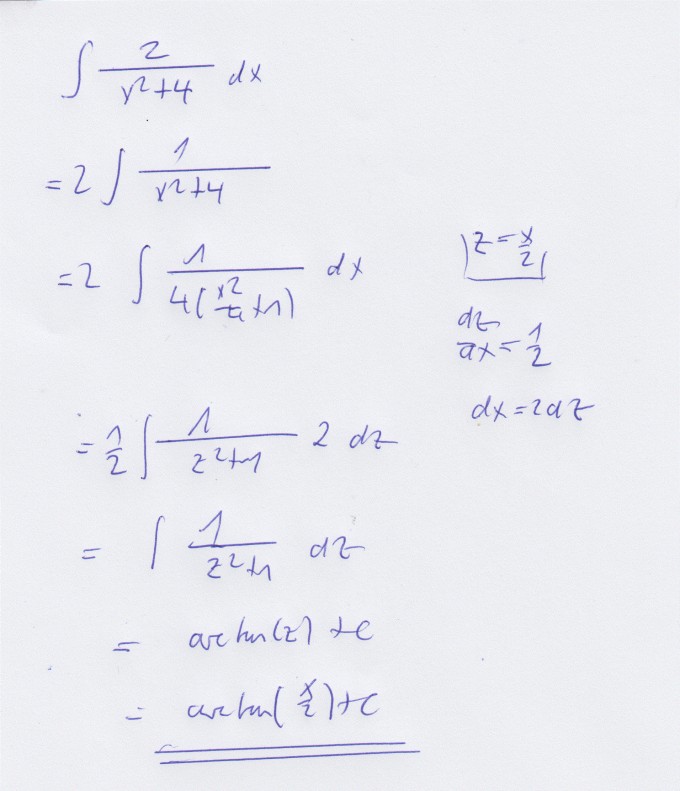 ∫ 2/(x²+4) dx
= 2 ∫ 1/(x²+4)
= 2 ∫ 1/(4(x²/4+1)) dx
z = x/2
dz/dx = 1/2
dx = 2dz
= 1/2 ∫ 1/(z²+1) 2 dz
= ∫ 1/(z²+1) dz
= arctan(z) + C
= arctan(x/2) + C